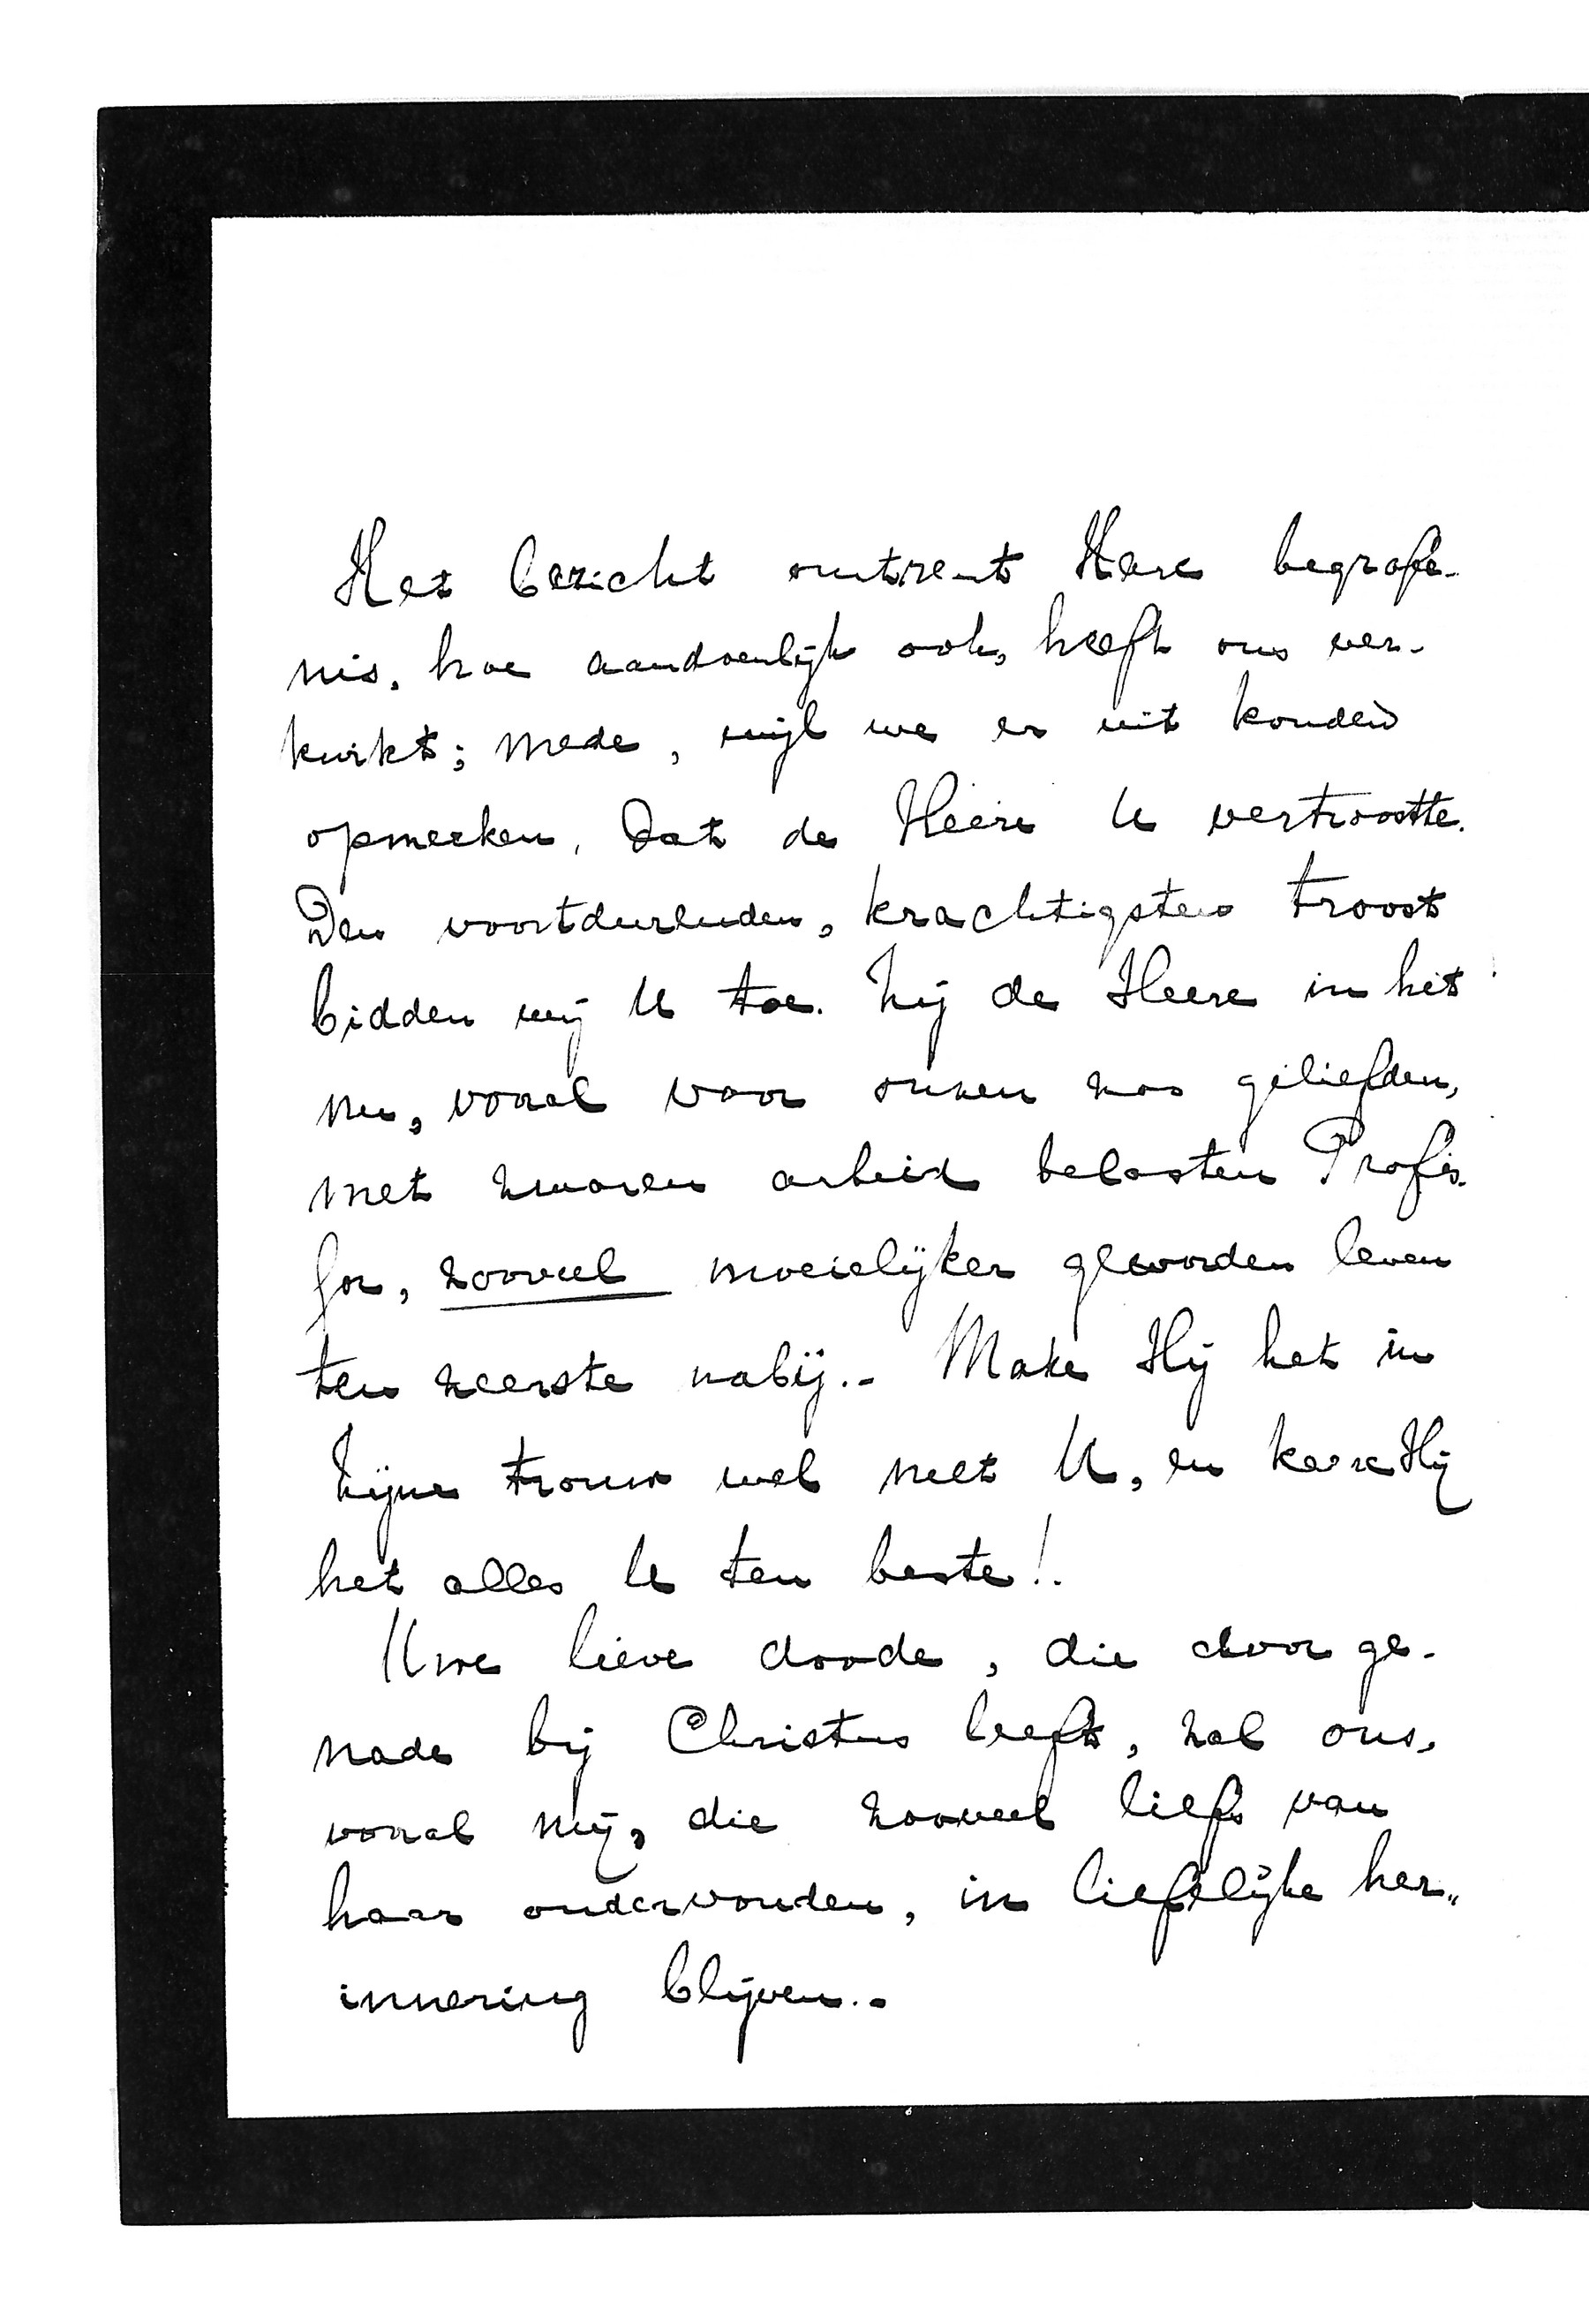 Het bericht omtrent Hare begrafe-
nis, hoe aandoenlijk ook, heeft ons ver-
kwikt; mede, wijl we er uit konden
opmerken, dat de Heere U vertroostte.
Den voortdurenden, krachtigsten troost
bidden wij U toe. Zij de Heere in het
nu, vooral voor onzen zoo geliefden,
met zwaren arbeid belasten Profes-
sor, zooveel moeielijker geworden leven
ten zeerste nabij.- Make Hij het in
Zijne trouw wel met U, en keere Hij
het alles U ten beste!.
Uwe lieve doode, die door ge-
nade bij Christus leeft, zal ons,
vooral mij, die zooveel liefs van
haar ondervonden, in liefelijke her-
innering blijven.-